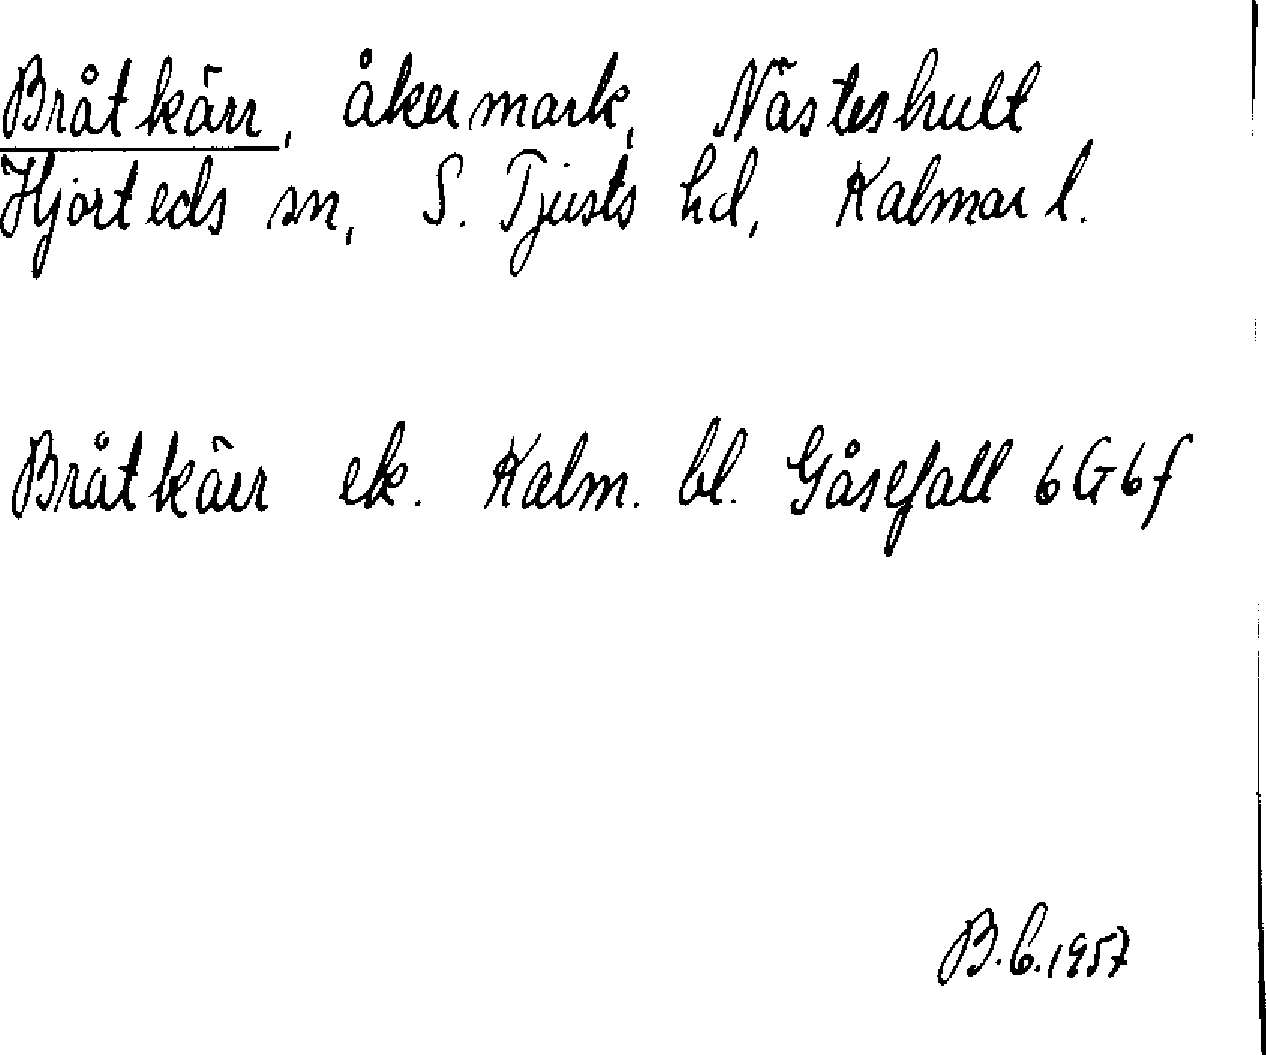 Bråtkärr, åkermark, Nästeshult
Hjorteds sn, S. Tjusts hd, Kalmar l.
Bråtkärr ek. Kalm. bl. Gåsefall 6G6f
B.C.1957